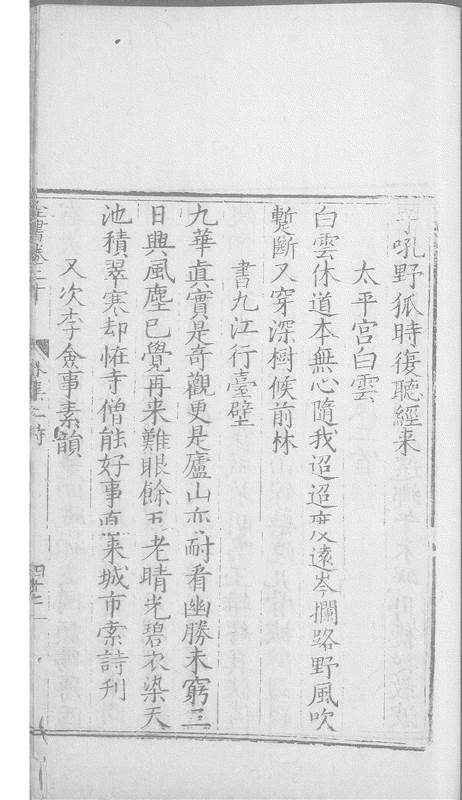 子吼野狐時復聽經来
太平宮白雲
白雲休道本無心隨我迢迢度遠岑攔路野風吹
蹔斷又穿深樹候前林
書九江行臺壁
九華真實是奇觀更是廬山亦耐看幽勝未窮三
日興風塵已覺再来難眼餘五老晴光碧衣染天
池積翠寒却怪寺僧能好事直来城市索詩刊
又次李僉事素韻
全書卷二十 外集二 詩